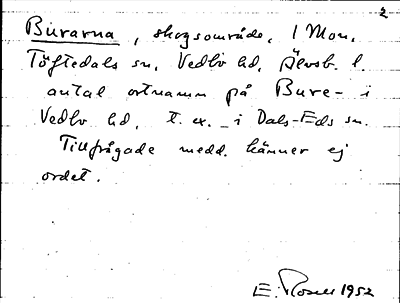 2
Burarna, skogsområde, i Mon,
Töftedals sn, Vedbo hd, Älvsb. l.
antal ortnamn på Bure- i
Vedbo hd, t. ex. i Dals-Eds sn.
Tillfrågade medd. känner ej
ordet.
E. Rosell 1952